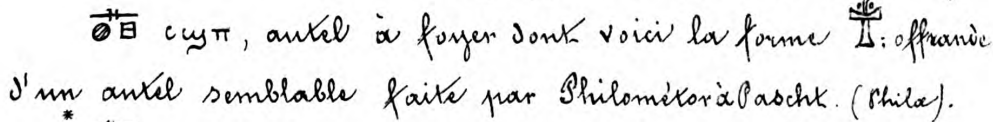 ⲥⲱⲡ, autel à foyer dont voici la forme : offrande
d'un autel semblable faite par Philométor à Pascht. (Philæ).
*